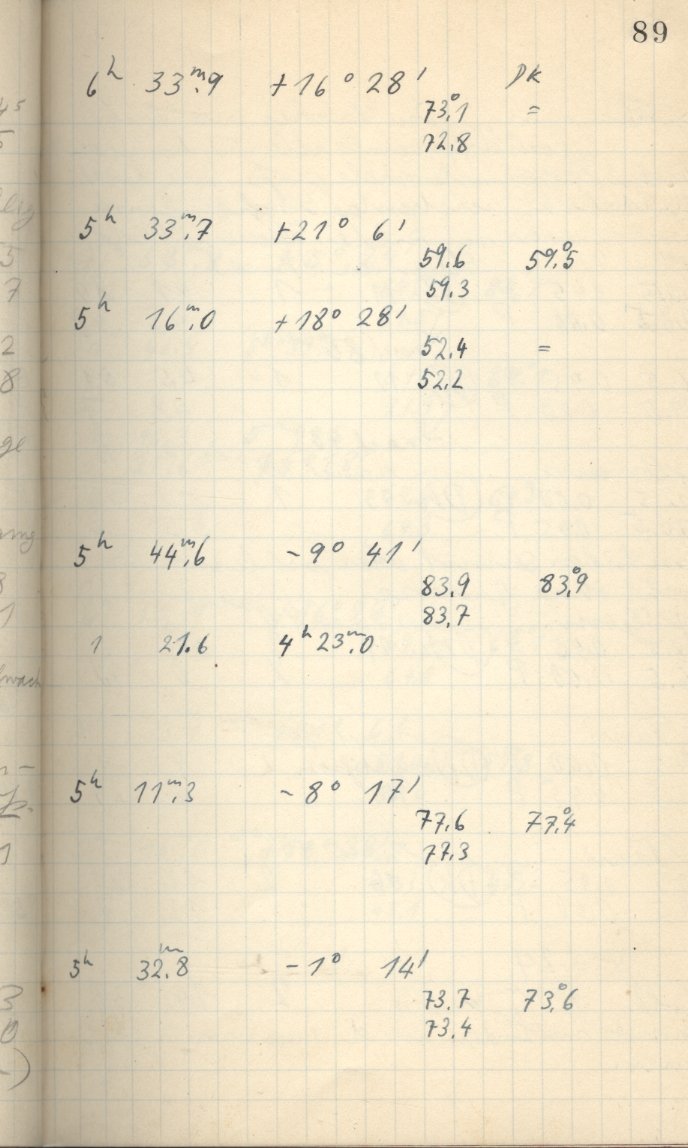 89
6ʰ 33ᵐ.9 +16° 28′ DK
73°.1 =
72.8
5ʰ 33ᵐ.7 +21° 6′
59.6 59°.5
59.3
5ʰ 16ᵐ.0 +18° 28′
52.4 =
52.2
5ʰ 44ᵐ.6 -9° 41′
83.9 83°.9
83.7
1 21.6 4ʰ 23ᵐ.0
5ʰ 11ᵐ.3 -8° 17′
77.6 77°.4
77.3
5ʰ 32ᵐ.8 -1° 14′
73.7 73°.6
73.4